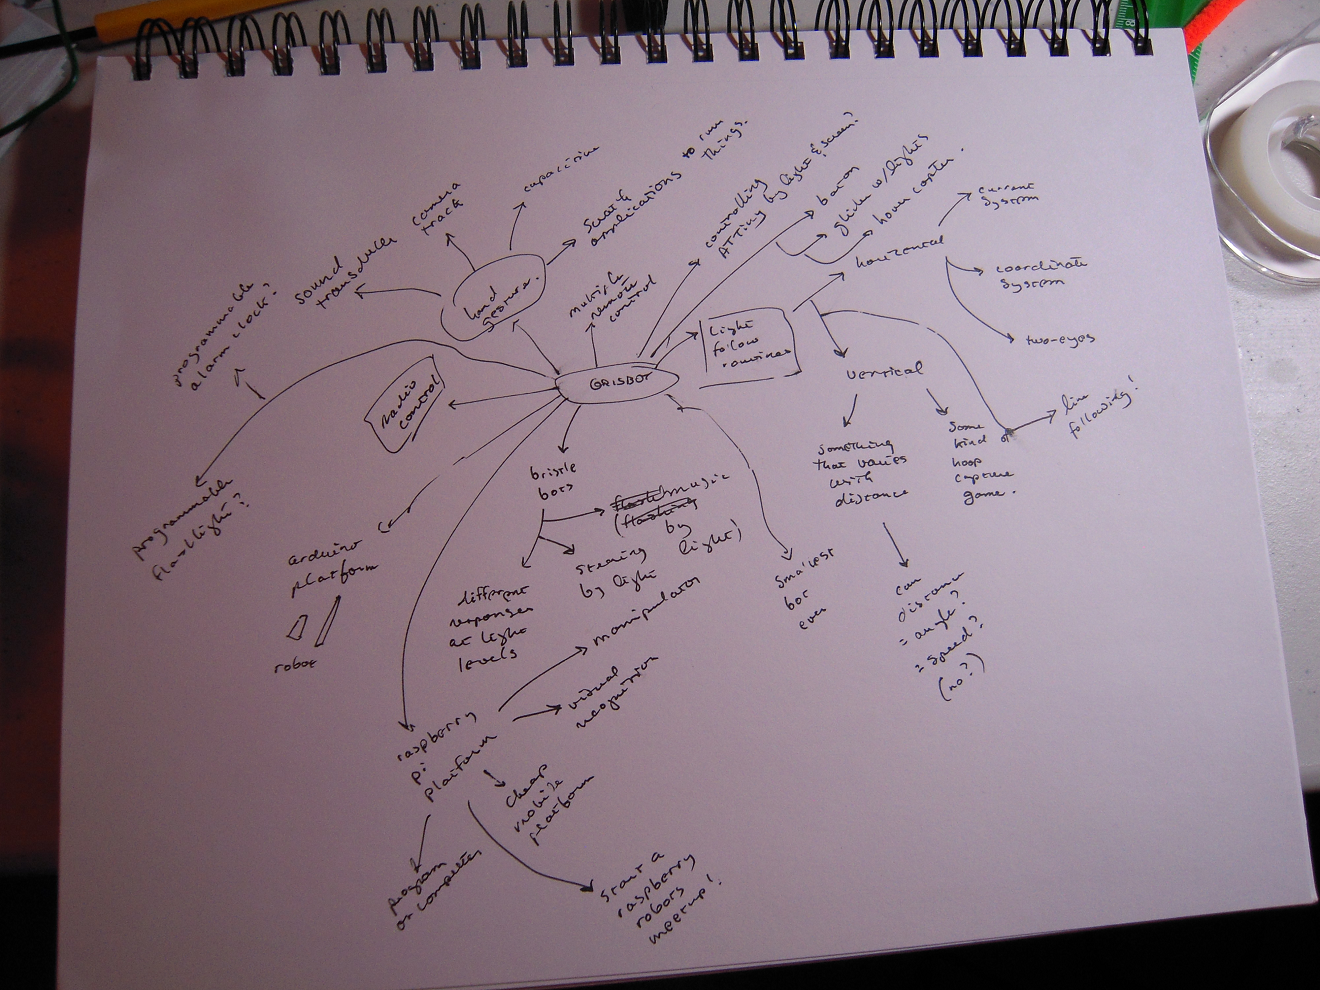 capacitive
camera
track
sound
transducer
applications to run
things.
hand
gesture.
programmable
alarm clock?
programmable
flashlight?
radio
control
multiple
remote
control
controlling
by light & screen?
baton
glider w/lights
hover copter.
GRISBOT
Light
follow
routines
horizontal
current
system
coordinate
system
two-eyes
vertical
something
that varies
with
distance
can
distance
= angle?
= speed?
(no?)
some
kind of
hoop
capture
game.
line
following!
smallest
bot
ever
bristle
bots
music
(flashing
by
light)
steering
by light
different
responses
at light
levels
arduino
platform
robot
raspberry
pi
platform
manipulator
visual
recognition
cheap
mobile
platform
program
on computer
start a
raspberry
robots
meetup!